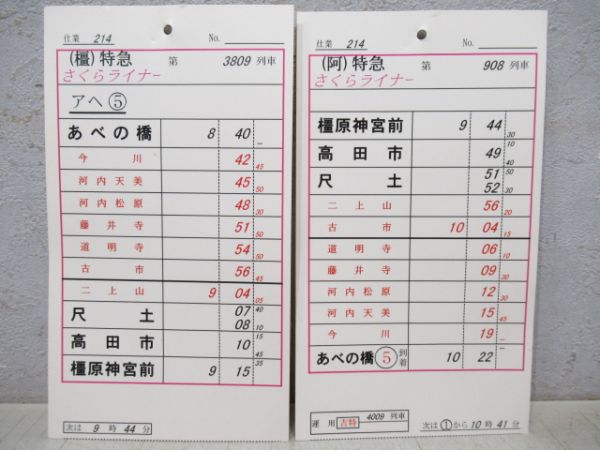 仕業 214 No.
(橿)特急 第 3809 列車
さくらライナー
アヘ⑤
あべの橋 8 40 —
今川 42 45
河内天美 45 50
河内松原 48 30
藤井寺 51 50
道明寺 54 50
古市 56 45
二上山 9 04 05
尺土 07 40
08 10
高田市 15
10 45
橿原神宮前 9 15 35
次は 9 時 44 分
仕業 214 No.
(阿)特急 第 908 列車
さくらライナー
橿原神宮前 9 44 30
高田市 10
49 40
尺土 51 50
52 30
二上山 56 20
古市 10 04 15
道明寺 06 10
藤井寺 09 30
河内松原 12 30
河内天美 15 45
今川 19 —
あべの橋 ⑤ 到着 10 22 —
運用 古特 4009 列車
次は ① から 10 時 41 分